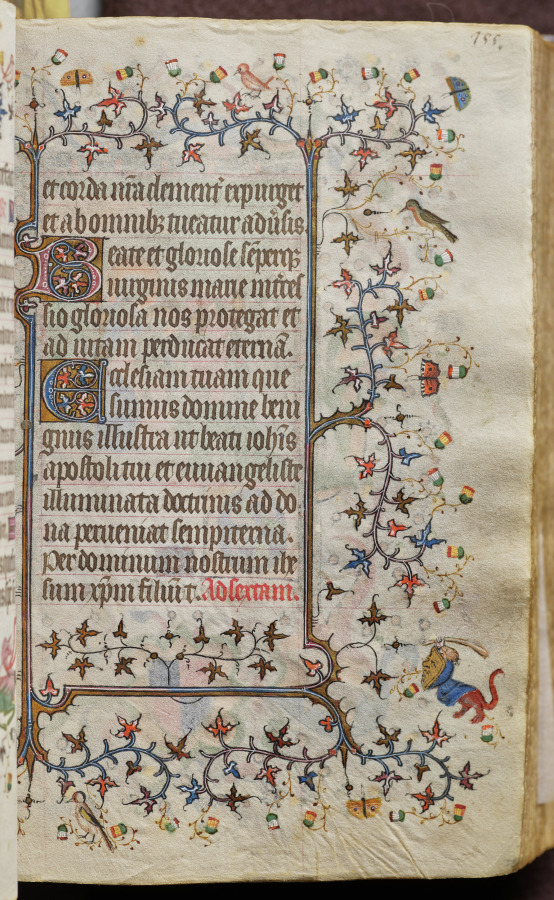 155.
et corda nr̄a clement̄ expurget
et ab omnibꝫ tueatur adūsis.
Beate et gloriose sēperqꝫ
uirginis marie intres
sio gloriosa nos protegat et
ad uitam perducat eternā.
Ecclesiam tuam que
sumus domine beni
gnus illustra ut beati ioh̄is
apostoli tui et euuangeliste
illuminata doctrinis ad do
na perueniat sempiterna.
Per dominum nostrum ihe
sum xp̄m filiū t. Ad sextam.